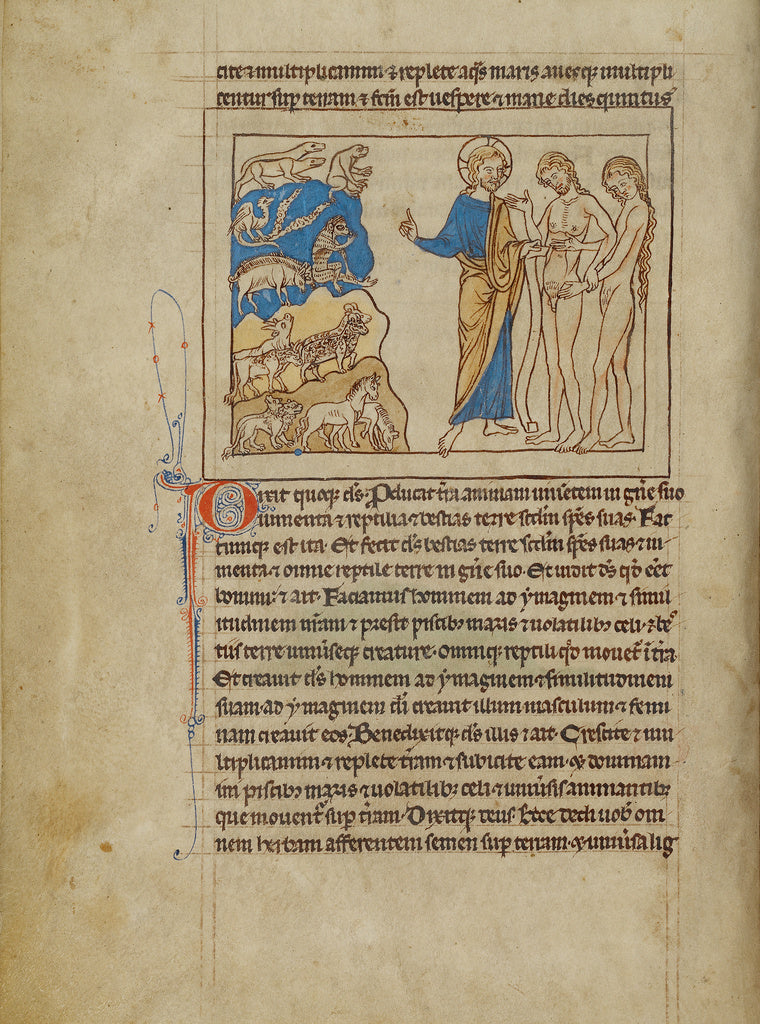 cite & multiplicamini & replete aq̄s maris auesq; multipli
centur sup terram & fc̄m est uespere & mane dies quintus
Dixit quoq; d̄s. Producat t̄ra animam uiuentem in gn̄e suo
iumenta & reptilia & bestias terre sc̄dm sp̄es suas. Fac
tumq; est ita. Et fecit d̄s bestias terre sc̄dm sp̄es suas & iu
menta & omne reptile terre in gn̄e suo. Et uidit d̄s qd̄ eēt
bonum. & ait. Faciamus hominem ad ymaginem & simil
itudinem nr̄am & presit piscib; maris & uolatilib; celi & be
tiis terre uniūseq; creature. omniq; reptili qd̄ mouet̄ ī t̄ra.
Et creauit d̄s hominem ad ymaginem & similitudinem
suam. ad ymaginem d̄i creauit illum masculum & femi
nam creauit eos. Benedixitq; d̄s illis & ait. Crescite & mu
ltiplicamini & replete t̄ram & subicite eam. & domnam
ini piscib; maris & uolatilib; celi & uniūsis animantib;
que mouent̄ sup t̄ram. Dixitq; deus. Ecce dedi uob̄ om
nem herbam afferentem semen sup terram. & uniūsa lig